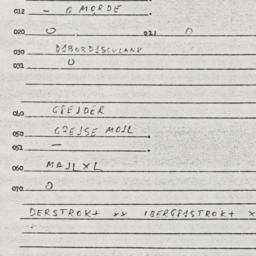 012 - G MORDE
020 0 021 0
030 DIBORDISCULANK
031 0
040 GREJDER
050 GREJSE MOJL
051 -
060 MAJLXL
070 0
DERSTROKT xx IBERGRISTROKT x